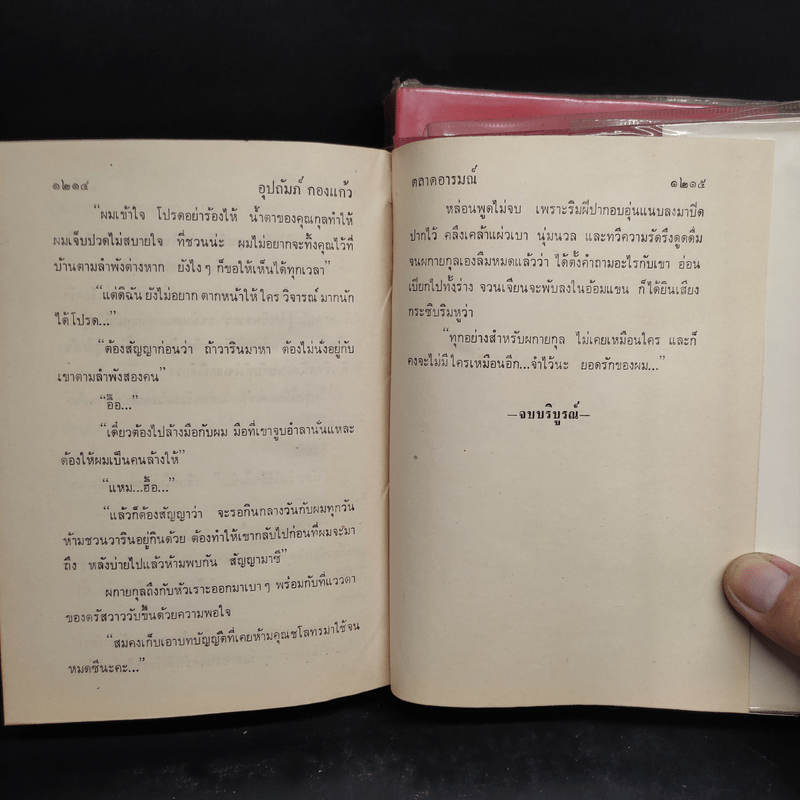 ๑๒๑๔ อุปถัมภ์ กองแก้ว
“ผมเข้าใจ โปรดอย่าร้องไห้ น้ำตาของคุณกุลทำให้
ผมเจ็บปวดไม่สบายใจ ที่ชวนน่ะ ผมไม่อยากจะทิ้งคุณไว้ที่
บ้านตามลำพังต่างหาก ยังไงๆ ก็ขอให้เห็นได้ทุกเวลา”
“แต่ดิฉันยังไม่อยากตากหน้าให้ใครวิจารณ์มากนัก
ได้โปรด...”
“ต้องสัญญาก่อนว่า ถ้าวารินมาหา ต้องไม่นั่งอยู่กับ
เขาตามลำพังสองคน”
“อื๊อ...”
“เดี๋ยวต้องไปล้างมือกับผม มือที่เขาจูบอำลานั่นแหละ
ต้องให้ผมเป็นคนล้างให้”
“แหม...ฮื้อ...”
“แล้วก็ต้องสัญญาว่า จะรอกินกลางวันกับผมทุกวัน
ห้ามชวนวารินอยู่กินด้วย ต้องทำให้เขากลับไปก่อนที่ผมจะมา
ถึง หลังบ่ายไปแล้วห้ามพบกัน สัญญามาซิ”
ผกายกุลถึงกับหัวเราะออกมาเบาๆ พร้อมกับที่แววตา
ของตรัสวาววับขึ้นด้วยความพอใจ
“สมคงเก็บเอาบทบัญญัติที่เคยห้ามคุณชโลทรมาใช้จน
หมดซีนะคะ...”
ตลาดอารมณ์ ๑๒๑๕
หล่อนพูดไม่จบ เพราะริมฝีปากอบอุ่นแนบลงมาปิด
ปากไว้ คลึงเคล้าแผ่วเบา นุ่มนวล และทวีความรัดรึงดูดดื่ม
จนผกายกุลเองลืมหมดแล้วว่า ได้ตั้งคำถามอะไรกับเขา อ่อน
เปียกไปทั้งร่าง จวนเจียนจะพับลงในอ้อมแขน ก็ได้ยินเสียง
กระซิบริมหูว่า
“ทุกอย่างสำหรับผกายกุล ไม่เคยเหมือนใคร และก็
คงจะไม่มีใครเหมือนอีก...จำไว้นะ ยอดรักของผม...”
—จบบริบูรณ์—